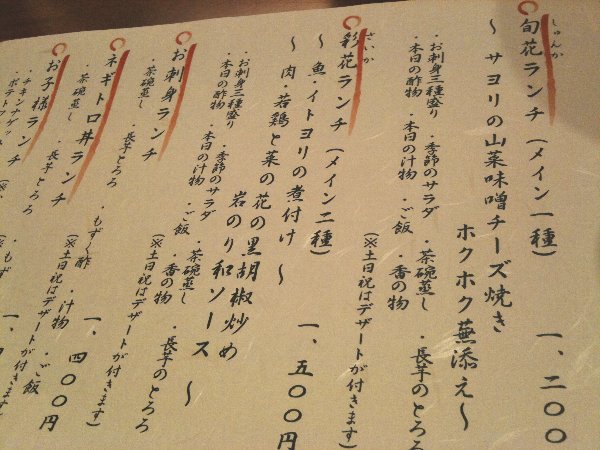 しゅんか
旬花ランチ（メイン一種） 一、二〇〇
～サヨリの山菜味噌チーズ焼き
ホクホク蕪添え～
・お刺身三種盛り ・季節のサラダ ・茶碗蒸し ・長芋のとろろ
・本日の酢物 ・本日の汁物 ・ご飯 ・香の物
（※土日祝はデザートが付きます）
さいか
彩花ランチ（メイン二種） 一、五〇〇円
～魚・イトヨリの煮付け～
～肉・若鶏と菜の花の黒胡椒炒め
岩のり和ソース～
・お刺身三種盛り ・季節のサラダ ・茶碗蒸し ・長芋のとろろ
・本日の酢物 ・本日の汁物 ・ご飯 ・香の物
（※土日祝はデザートが付きます）
お刺身ランチ 一、四〇〇円
・茶碗蒸し ・長芋とろろ ・もずく酢 ・汁物 ・ご飯
ネギトロ丼ランチ
・茶碗蒸し ・長芋とろろ ・もず
お子様ランチ
・チキンナゲット
・ポテト